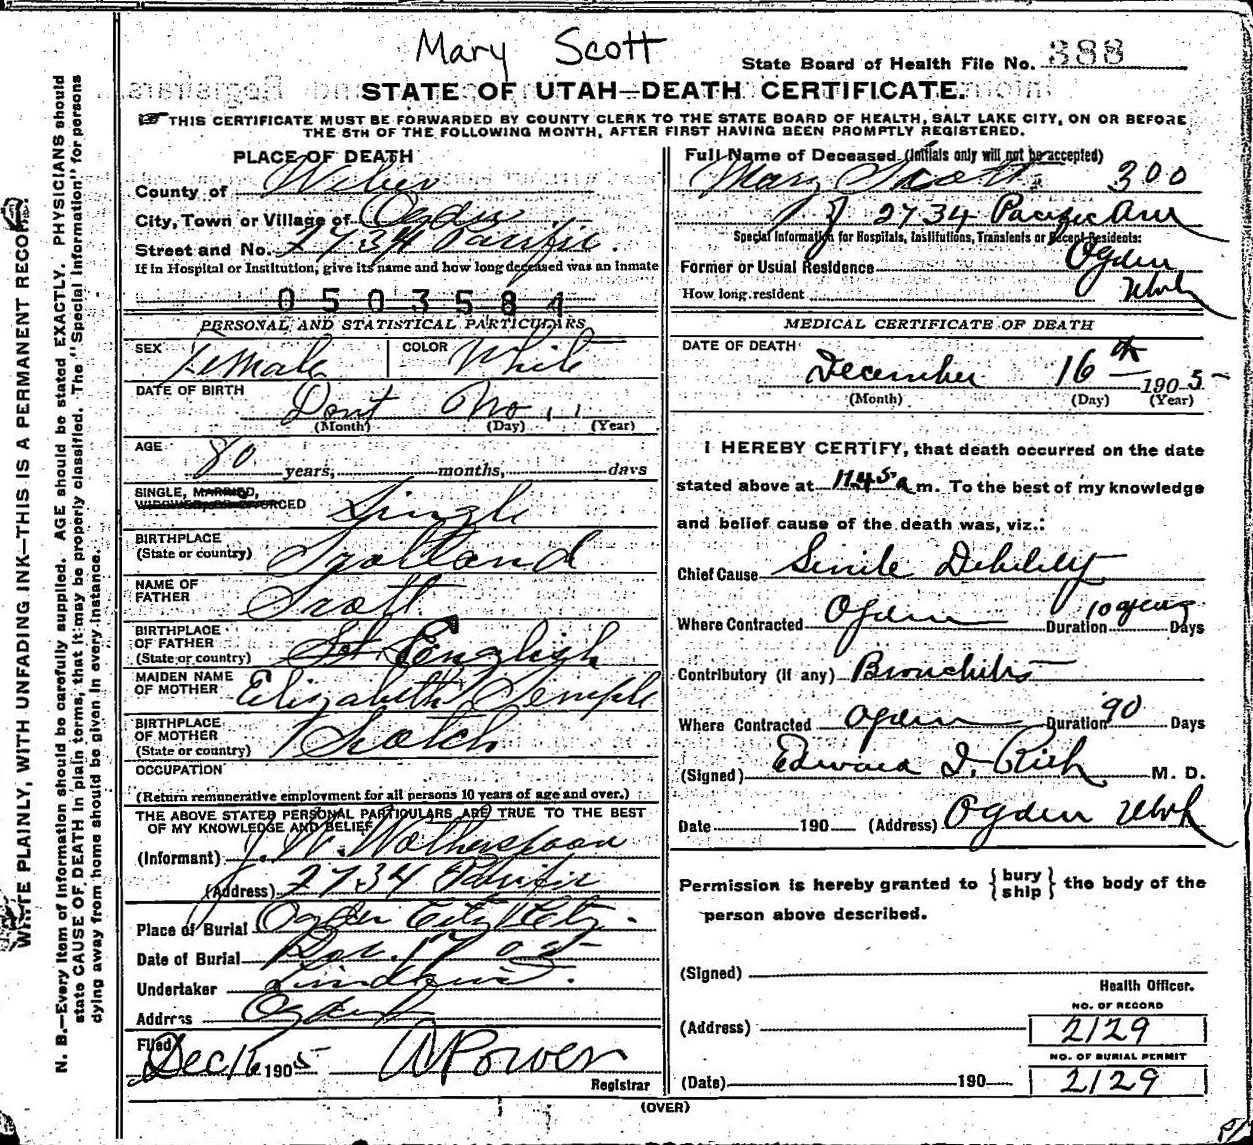 Mary Scott
State Board of Health File No. 388
STATE OF UTAH—DEATH CERTIFICATE.
THIS CERTIFICATE MUST BE FORWARDED BY COUNTY CLERK TO THE STATE BOARD OF HEALTH, SALT LAKE CITY, ON OR BEFORE
THE 5TH OF THE FOLLOWING MONTH, AFTER FIRST HAVING BEEN PROMPTLY REGISTERED.
WRITE PLAINLY, WITH UNFADING INK—THIS IS A PERMANENT RECORD.
N. B.—Every item of information should be carefully supplied. AGE should be stated EXACTLY. PHYSICIANS should
state CAUSE OF DEATH in plain terms, that it may be properly classified. The "Special Information" for persons
dying away from home should be given in every instance.
PLACE OF DEATH
County of Weber
City, Town or Village of Ogden
Street and No. 2734 Pacific.
If in Hospital or Institution, give its name and how long deceased was an inmate
0503581
PERSONAL AND STATISTICAL PARTICULARS
SEX Female COLOR White
DATE OF BIRTH Dont No
(Month) (Day) (Year)
AGE 80 years, months, days
SINGLE, MARRIED,
WIDOWED, OR DIVORCED Single
BIRTHPLACE
(State or country) Scotland
NAME OF
FATHER Scott
BIRTHPLACE
OF FATHER
(State or country) English
MAIDEN NAME
OF MOTHER Elizabeth Semple
BIRTHPLACE
OF MOTHER
(State or country) Scotch
OCCUPATION
(Return remunerative employment for all persons 10 years of age and over.)
THE ABOVE STATED PERSONAL PARTICULARS ARE TRUE TO THE BEST
OF MY KNOWLEDGE AND BELIEF
(Informant) J. W. Wotherspoon
(Address) 2734 Pacific
Place of Burial Ogden City
Date of Burial Dec. 17 05
Undertaker Lindquist
Address Ogden
Filed Dec 16 1905 Registrar
Full Name of Deceased (Initials only will not be accepted)
Mary Scott 300
2734 Pacific Ave
Special Information for Hospitals, Institutions, Transients or Recent Residents:
Former or Usual Residence Ogden
How long resident Utah
MEDICAL CERTIFICATE OF DEATH
DATE OF DEATH
December 16th 1905
(Month) (Day) (Year)
I HEREBY CERTIFY, that death occurred on the date
stated above at 1145 a m. To the best of my knowledge
and belief cause of the death was, viz.:
Chief Cause Senile Debility
Where Contracted Ogden Duration 10 years Days
Contributory (If any) Bronchitis
Where Contracted Ogden Duration 90 Days
(Signed) Edward I. Rich M. D.
Date 190 (Address) Ogden Utah
Permission is hereby granted to {bury ship} the body of the
person above described.
(Signed)
Health Officer.
NO. OF RECORD
(Address) 2129
NO. OF BURIAL PERMIT
(Date) 190 2129
(OVER)